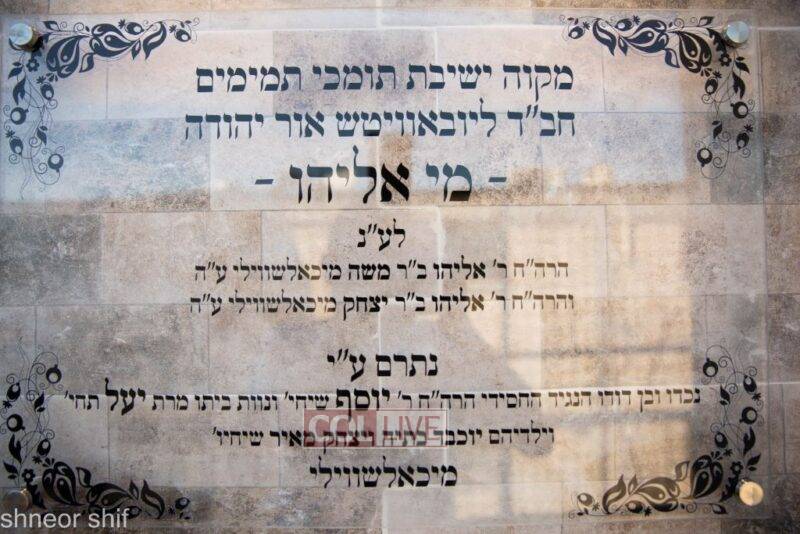 מקוה ישיבת תומכי תמימים
חב"ד ליובאוויטש אור יהודה
- מי אליהו -
לע"נ
הרה"ח ר' אליהו ב"ר משה מיכאלשווילי ע"ה
והרה"ח ר' אליהו ב"ר יצחק מיכאלשווילי ע"ה
נתרם ע"י
נכדו ובן דודו הנגיד החסידי הרה"ח ר' יוסף שיחי' ונוות ביתו מרת יעל תחי'
וילדיהם יוכבד חיה ויצחק מאיר שיחיו'
מיכאלשווילי
COL LIVE
shneor shif